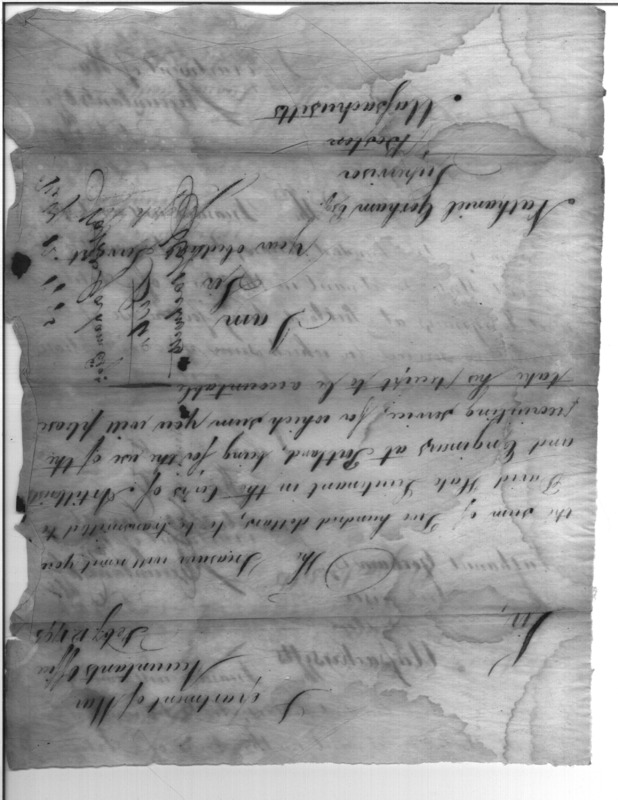 Department of War
Accountants Office
Feby 12 1795
Sir,
The Treasurer will remit you
the sum of Five hundred dollars, to be transmitted to
David Hale Lieutenant in the Corps of Artillerists
and Engineers at Portland, being for the use of the
recruiting service, for which sum you will please
take his receipt to be accountable
I am
Sir
Your Obedient Servant
Nathaniel Gorham Esq.
Supervisor
Boston
Massachusetts